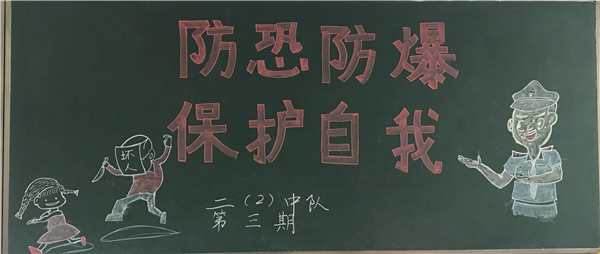 防恐防爆
保护自我
坏
人
二（2）中队
第三期